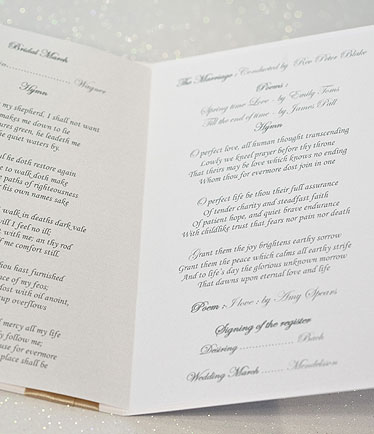 Bridal March
Wagner
Hymn
my shepherd, I shall not want
makes me down to lie
ures green, he leadeth me
quiet waters by.
l he doth restore again
to walk doth make
paths of righteousness
his own names sake
walk in deaths dark vale
I feel no ill;
with me; an thy rod
me comfort still.
hou hast furnished
ce of my feos;
dost with oil anoint,
up overflows
mercy all my life
ly follow me;
use for evermore
place shall be
The Marriage : Conducted by Rev Peter Blake
Poems :
Spring time Love - by Emily Toms
Till the end of time - by James Pall
Hymn
O perfect love, all human thought transcending
Lowly we kneel prayer before thy throne
That theirs may be love which knows no ending
Whom thou for evermore dost join in one
O perfect life be thou their full assurance
Of tender charity and steadfast faith
Of patient hope, and quiet brave endurance
With childlike trust that fears nor pain nor death
Grant them the joy brightens earthy sorrow
Grant them the peace which calms all earthly strife
And to life's day the glorious unknown morrow
That dawns upon eternal love and life
Poem : I love : by Amy Spears
Signing of the register
Desiring .................. Bach
Wedding March ......... Mendelsson